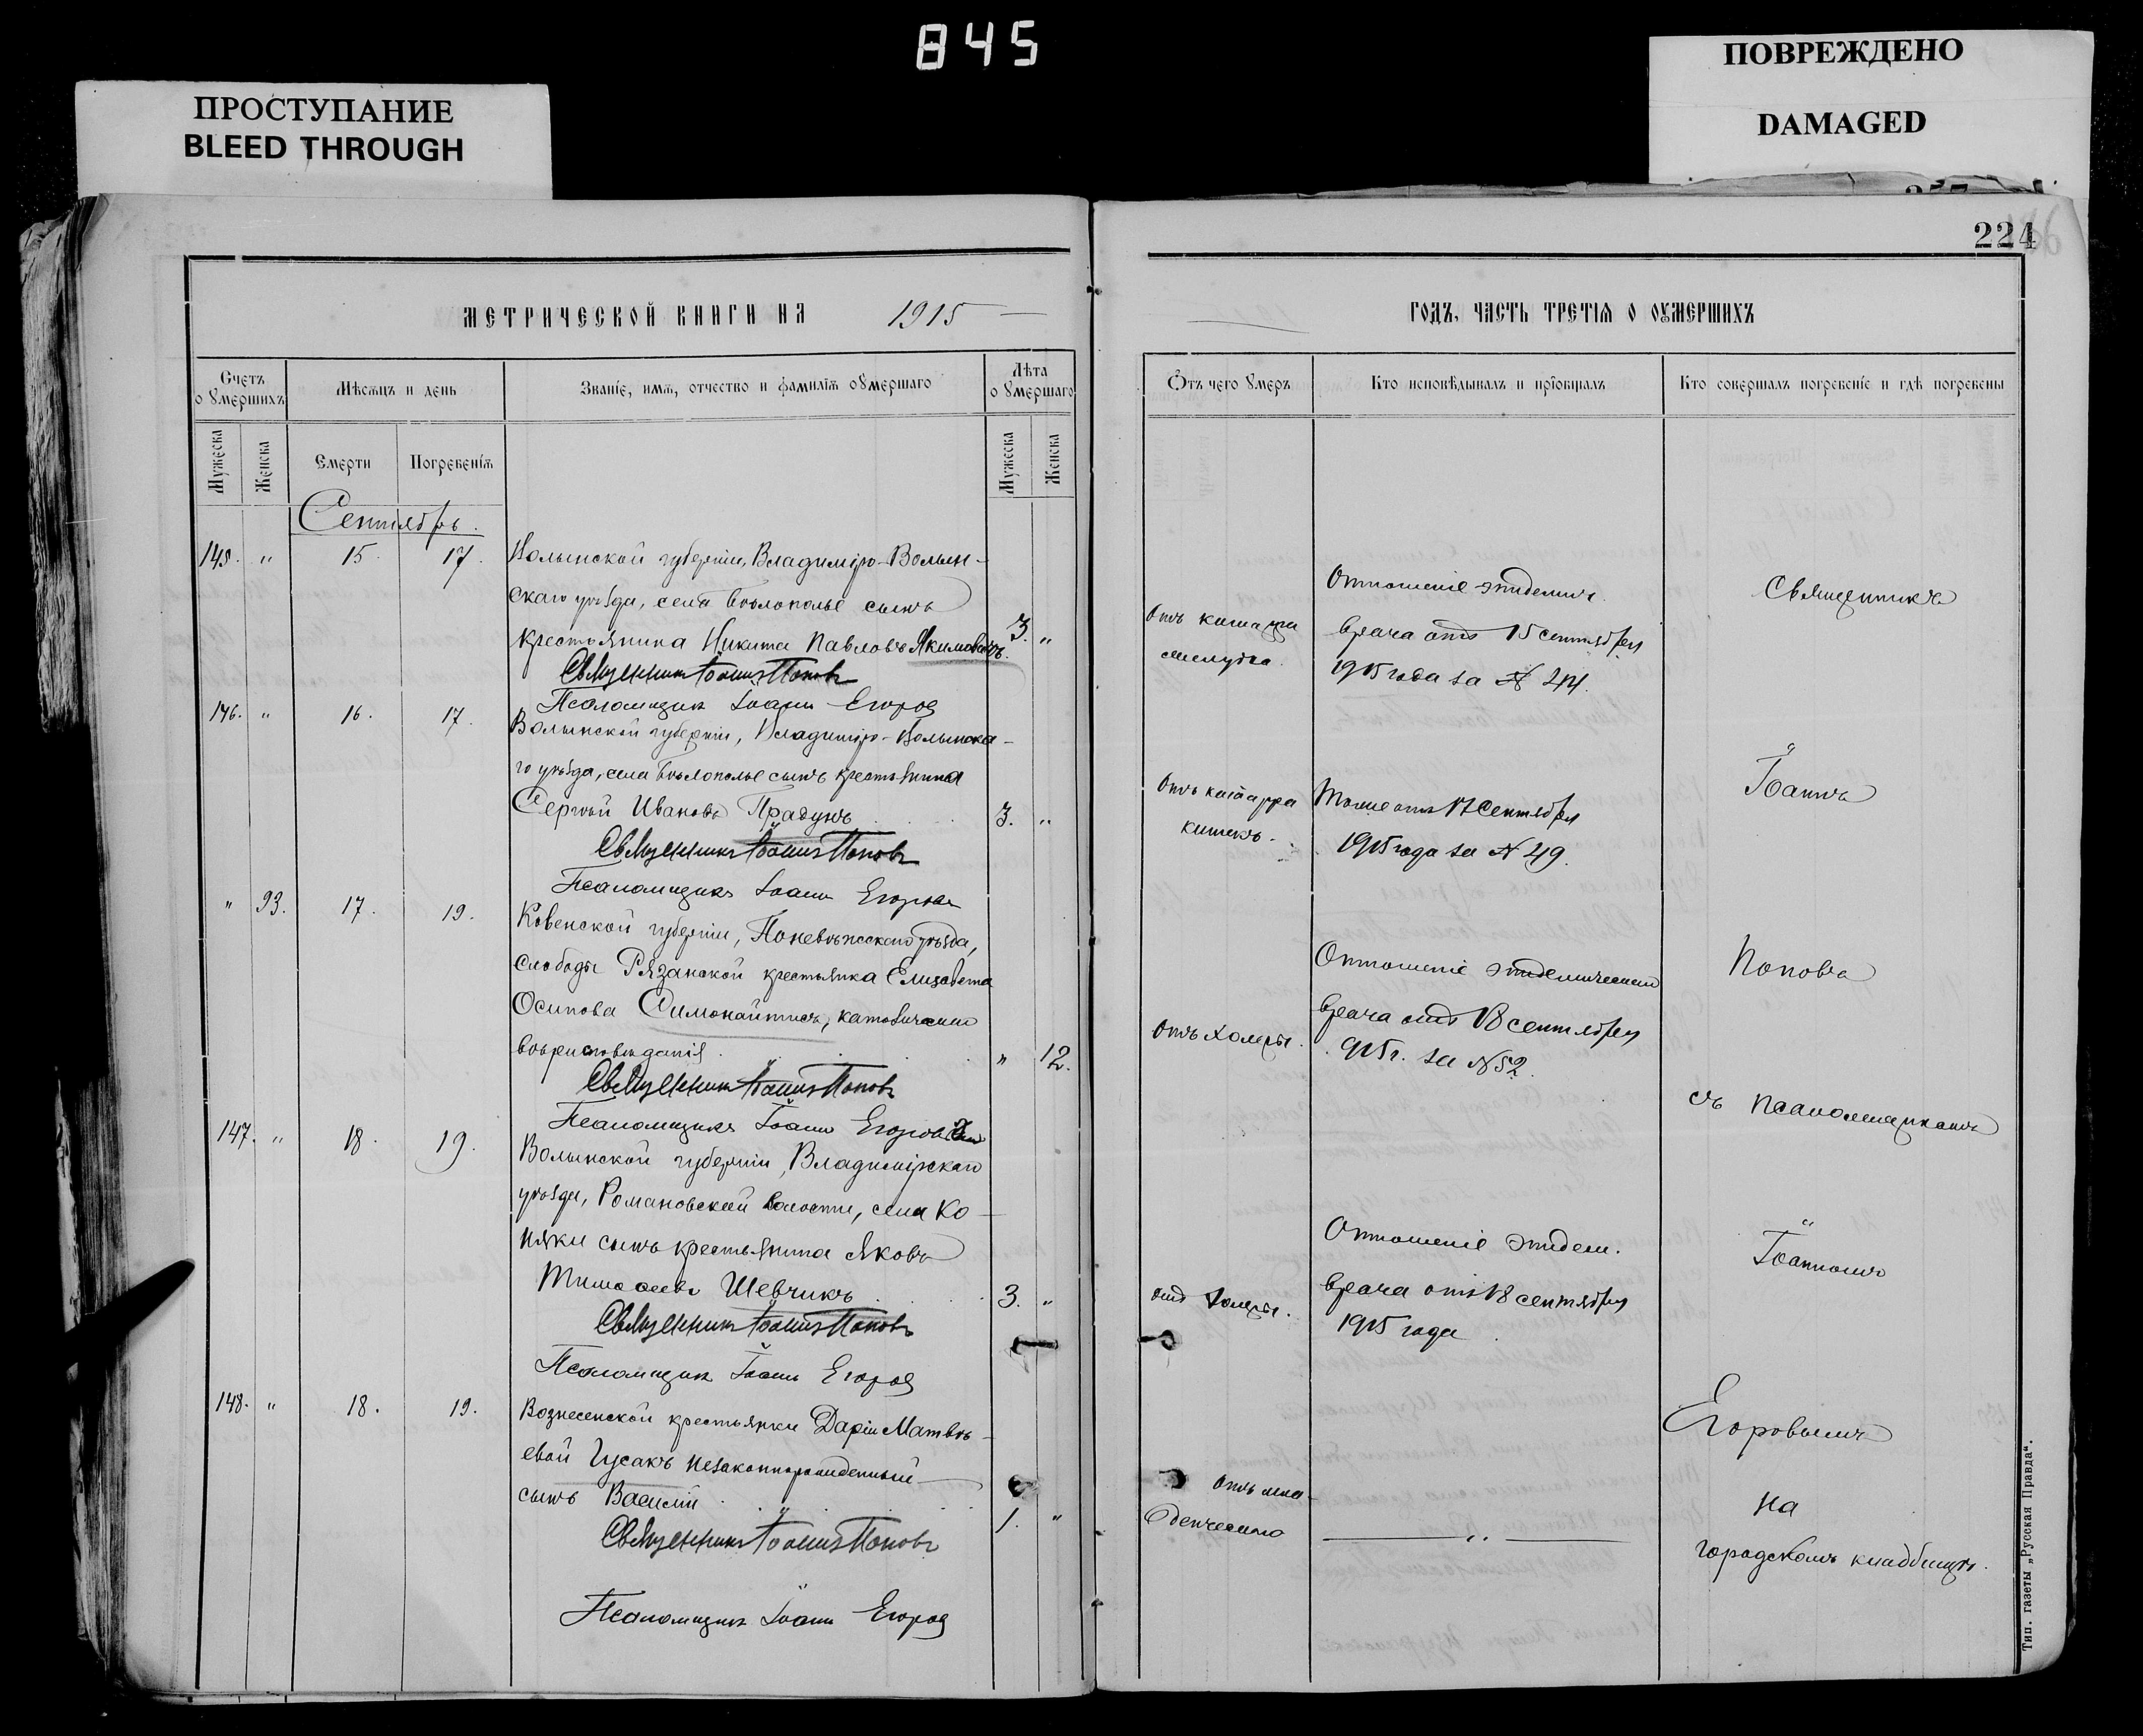 845
ПРОСТУПАНИЕ
BLEED THROUGH
ПОВРЕЖДЕНО
DAMAGED
224
МЕТРИЧЕСКОЙ КНИГИ НА 1915
Счетъ оумершихъ
Мѣсяцъ и день
Званіе, имя, отчество и фамилія оумершаго
Лѣта оумершаго
Мужеска
Женска
Смерти
Погребенія
Мужеска
Женска
Сентябрь.
145. " 15. 17. Волынской губерніи, Владиміро-Волын-
скаго уѣзда, села Бѣлополье сынъ
крестьянина Никита Павловъ Якимовичъ. 3. "
Священникъ Іоаннъ Поповъ
Псаломщикъ Іоаннъ Егоровъ
146. " 16. 17. Волынской губерніи, Владиміро-Волынска-
го уѣзда, села Бѣлополье сынъ крестьянина
Сергѣй Ивановъ Прадунъ 3. "
Священникъ Іоаннъ Поповъ
Псаломщикъ Іоаннъ Егоровъ
" 93. 17. 19. Ковенской губерніи, Поневѣжскаго уѣзда,
слободы Рязанской крестьянка Елизавета
Осипова Симонайтисъ, католическаго
вѣроисповѣданія " 12.
Священникъ Іоаннъ Поповъ
Псаломщикъ Іоаннъ Егоровъ
147. " 18. 19. Волынской губерніи, Владимірскаго
уѣзда, Романовской волости, села Ко-
няки сынъ крестьянина Яковъ
Тимофеевъ Шевчикъ 3. "
Священникъ Іоаннъ Поповъ
Псаломщикъ Іоаннъ Егоровъ
148. " 18. 19. Вознесенской крестьянки Даріи Матвѣ-
евой Гусакъ незаконнорожденный
сынъ Василій 1. "
Священникъ Іоаннъ Поповъ
Псаломщикъ Іоаннъ Егоровъ
ГОДЪ, ЧАСТЬ ТРЕТІЯ О ОУМЕРШИХЪ
Отъ чего умеръ
Кто исповѣдывалъ и пріобщалъ
Кто совершалъ погребеніе и гдѣ погребены
Отъ катарра
желудка.
Отношеніе эпидемич.
врача отъ 15 сентября
1915 года за № 44.
Отъ катарра
кишекъ.
Тоже отъ 17 Сентября
1915 года за № 49.
Отъ холеры.
Отношеніе эпидемическаго
врача отъ 18 сентября
915 г. за № 52.
отъ холеры.
Отношеніе эпидем.
врача отъ 18 сентября
1915 года
Отъ мла-
денческаго
"
Священникъ
Іоаннъ
Поповъ
съ псаломщикомъ
Іоанномъ
Егоровымъ
на
городскомъ кладбищѣ.
Тип. газеты „Русская Правда“.